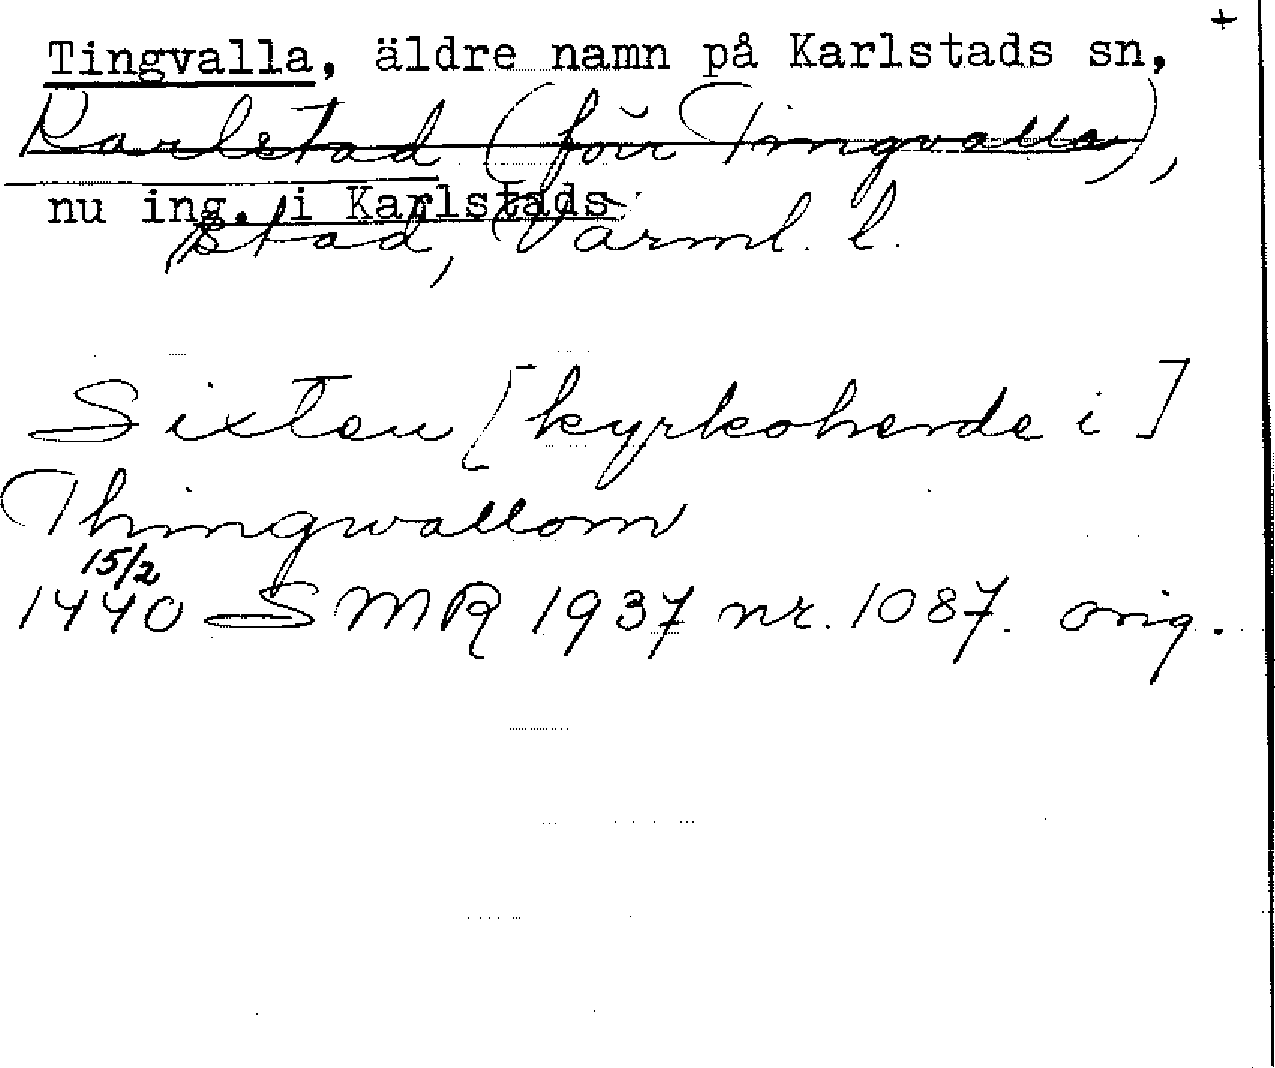 +
Tingvalla, äldre namn på Karlstads sn,
Karlstad (förr Tingvalla),
nu ing. i Karlstads
stad, Värml. l.
Sixten [kyrkoherde i]
Thingwallom
15/2
1440 SMR 1937 nr. 1087. orig.